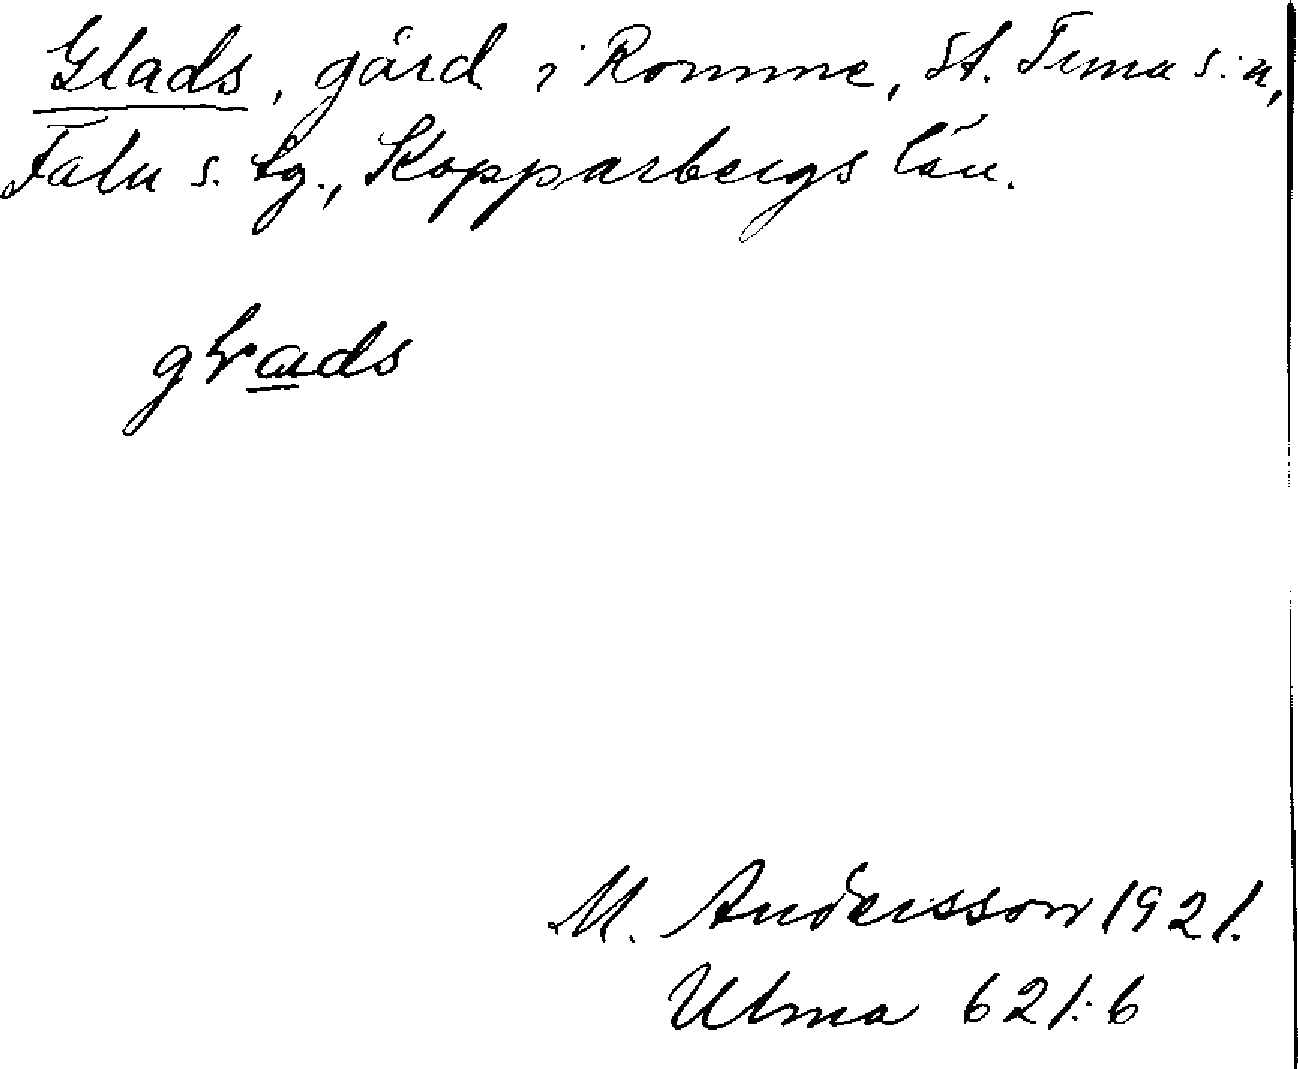 Glads, gård i Romme, St. Tuna s:n,
Falu s. tg., Kopparbergs län.
glads
M. Andersson 1921.
Ulma 621:6